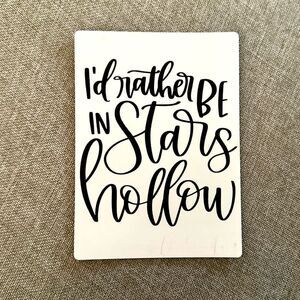 I'd rather BE
IN Stars
hollow